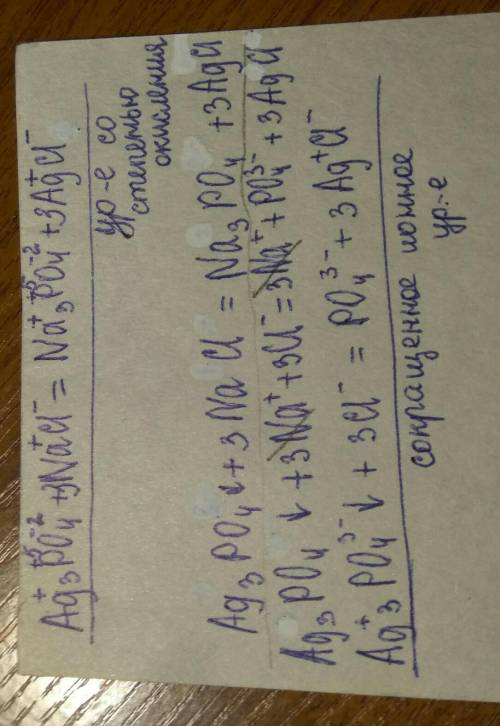 Ag₃⁺P⁺⁵O₄⁻² + 3Na⁺Cl⁻ = Na₃⁺P⁺⁵O₄⁻² + 3Ag⁺Cl⁻
ур-е со
степенью
окисления
Ag₃PO₄↓ + 3NaCl = Na₃PO₄ + 3AgCl
Ag₃PO₄↓ + 3Na⁺ + 3Cl⁻ = 3Na⁺ + PO₄³⁻ + 3AgCl
Ag₃⁺PO₄³⁻↓ + 3Cl⁻ = PO₄³⁻ + 3Ag⁺Cl⁻
сокращенное ионное
ур-е